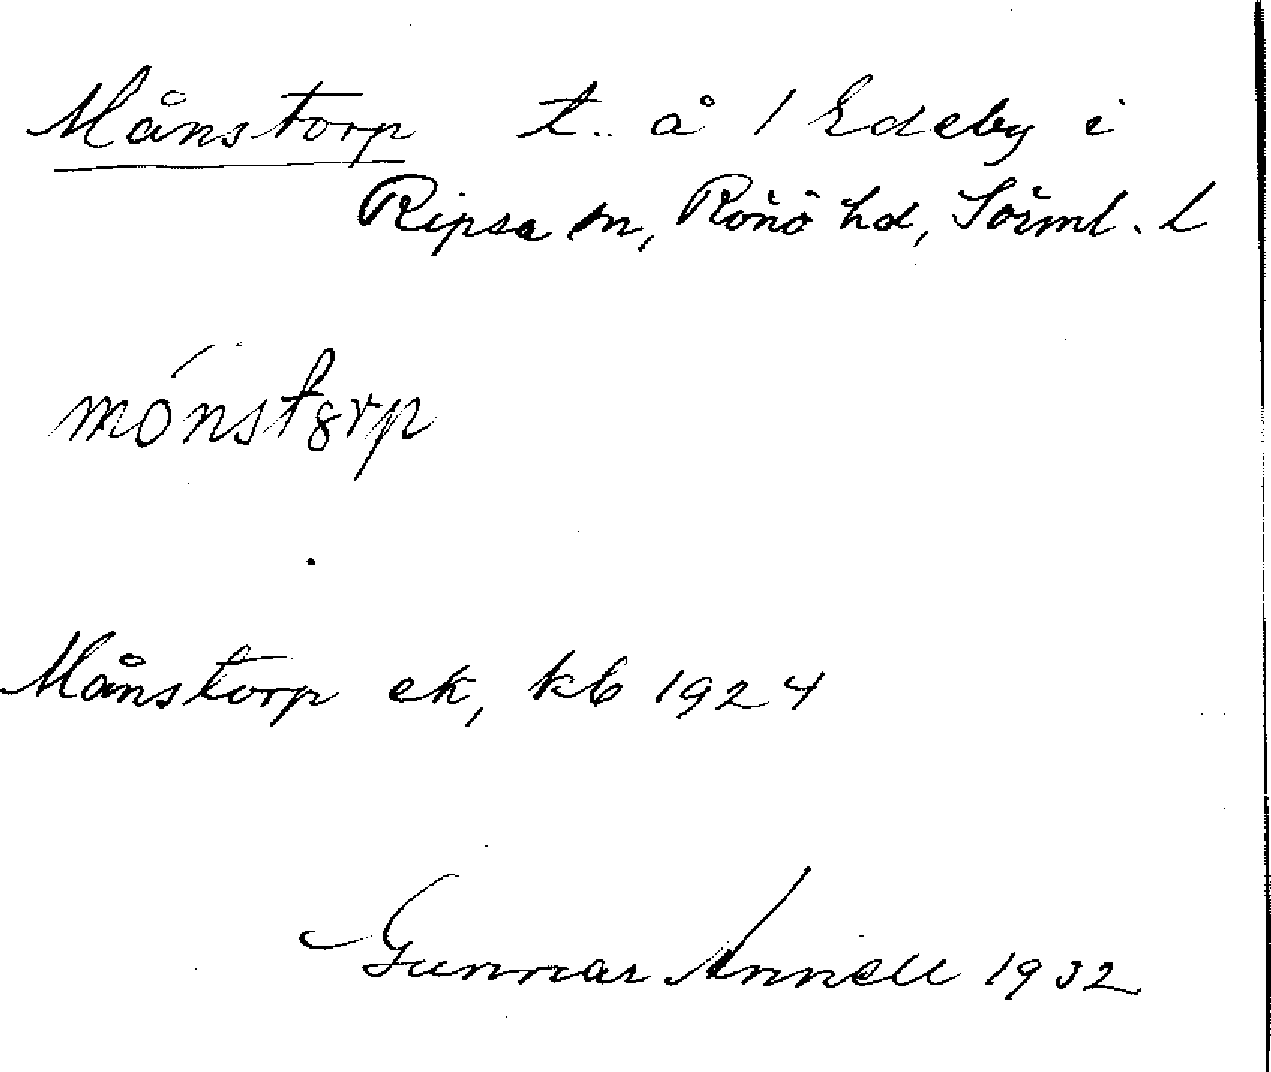 Månstorp t. å 1 Edeby i
Ripsa sn, Rönö hd, Sörml. l
mónstȣrp
Månstorp ek, kb 1924
Gunnar Annell 1932